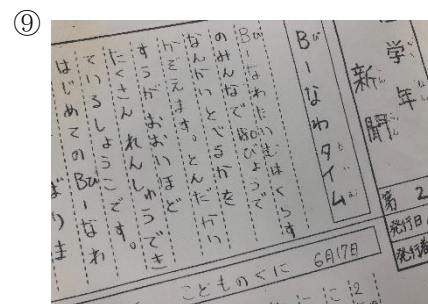 ⑨
学年
新聞
第2
発行日
発行者
B－なわタイム
B－なわたいむはくらす
のみんなで180びょうで
なんかいとべるかを
かぞえます。とんだかい
すうがおおいほど
たくさんれんしゅうでき
ているしょうこです。
はじめてのB－なわ
こどものくに 6月17日